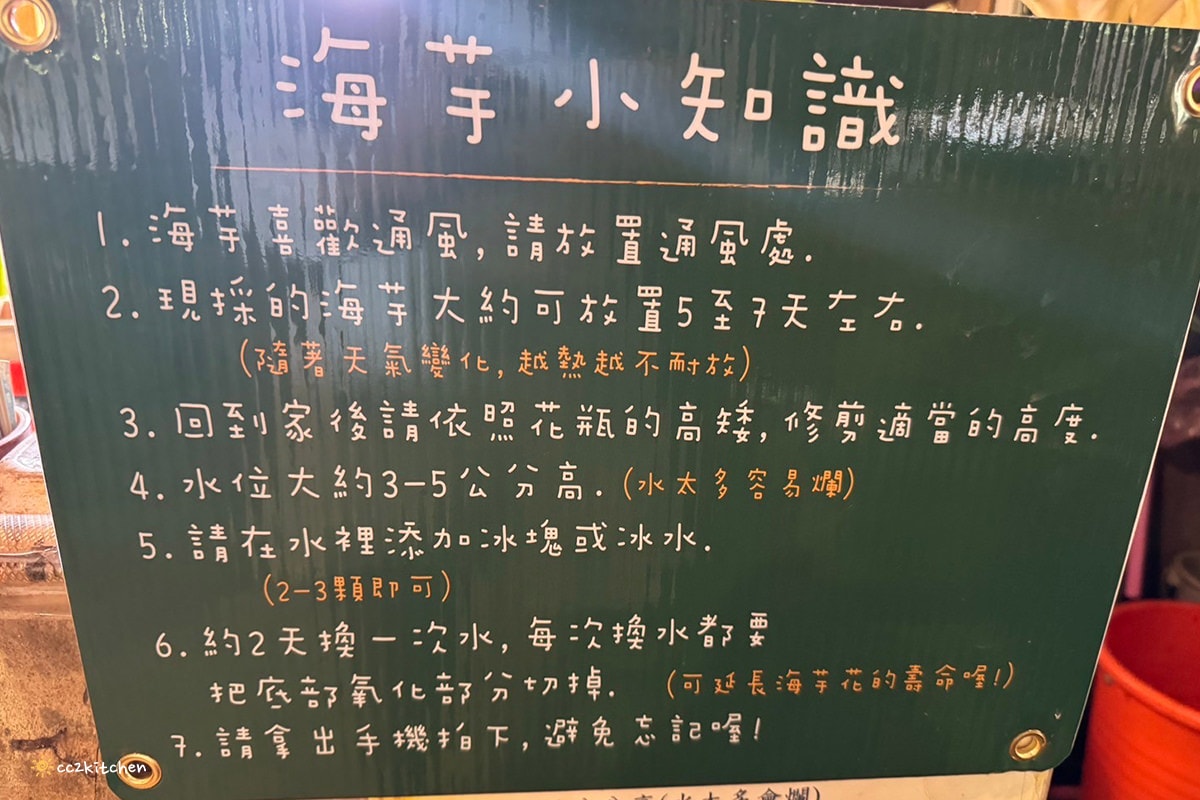 海芋小知識
1. 海芋喜歡通風,請放置通風處.
2. 現採的海芋大約可放置5至7天左右.
(隨著天氣變化,越熱越不耐放)
3. 回到家後請依照花瓶的高矮,修剪適當的高度.
4. 水位大約3-5公分高. (水太多容易爛)
5. 請在水裡添加冰塊或冰水.
(2-3顆即可)
6. 約2天換一次水,每次換水都要
把底部氧化部分切掉. (可延長海芋花的壽命喔!)
7. 請拿出手機拍下,避免忘記喔!
cc2kitchen
(水太多會爛)